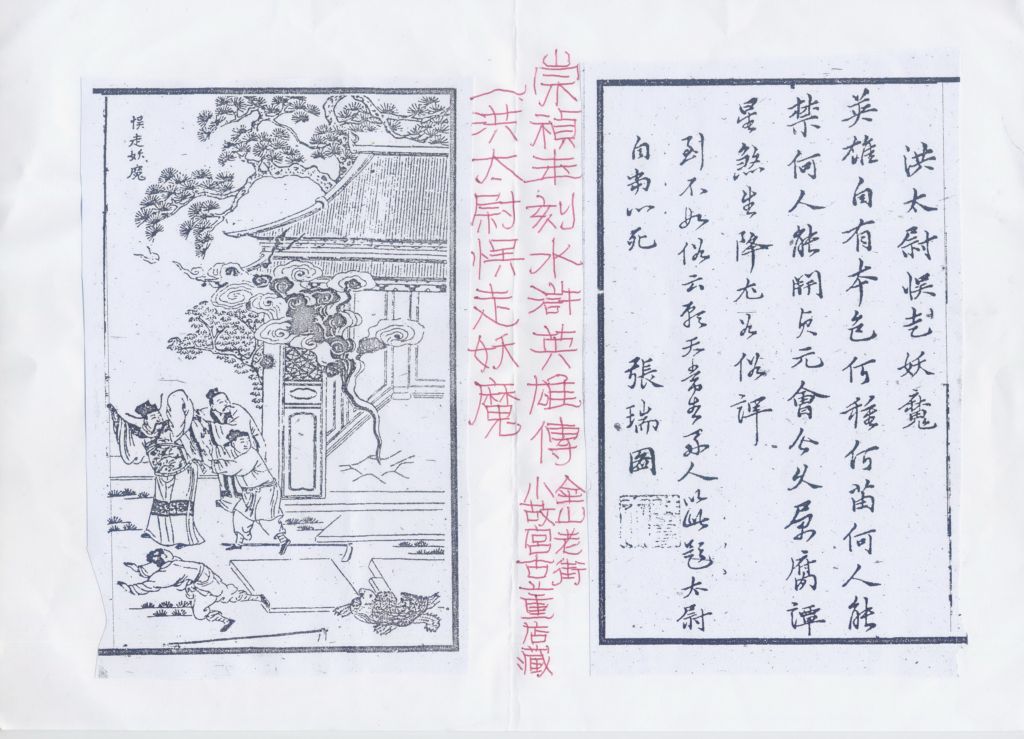 洪太尉悞走妖魔
英雄自有本色何種何苗何人能
禁何人能開貞元會合久屏腐譚
星煞生降尤為俗譚
到不如俗云願天常生好人以此題太尉
自當心死
張瑞圖
崇禎本刻水滸英雄傳
金山老街
小故宮古董店藏
(洪太尉悞走妖魔
悞走妖魔